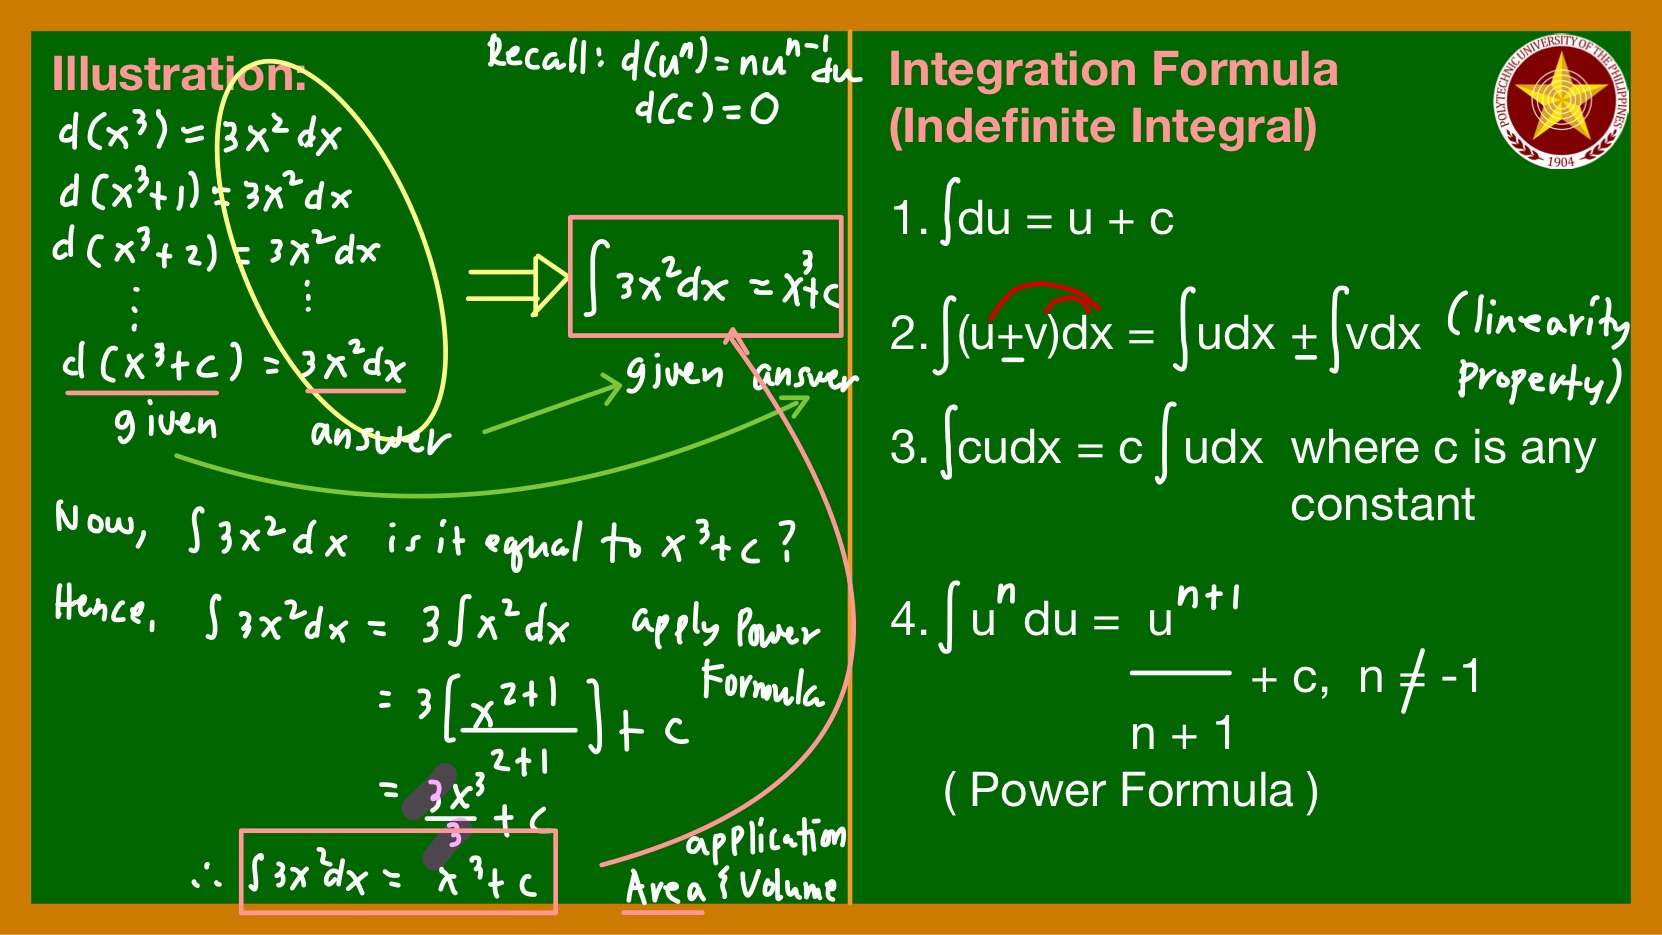 Illustration:
Recall: d(uⁿ) = nuⁿ⁻¹du
d(c) = 0
d(x³) = 3x²dx
d(x³+1) = 3x²dx
d(x³+2) = 3x²dx
⋮ ⋮
d(x³+c) = 3x²dx
given answer
∫3x²dx = x³+c
given answer
Now, ∫3x²dx is it equal to x³+c?
Hence, ∫3x²dx = 3∫x²dx apply Power
Formula
= 3[x²⁺¹/2+1] + c
= 3x³/3 + c
∴ ∫3x²dx = x³+c
application
Area & Volume
Integration Formula
(Indefinite Integral)
POLYTECHNIC UNIVERSITY OF THE PHILIPPINES
1904
1. ∫du = u + c
2. ∫(u±v)dx = ∫udx ± ∫vdx (linearity
property)
3. ∫cudx = c ∫udx where c is any
constant
4. ∫uⁿdu = uⁿ⁺¹
/ n + 1 + c, n ≠ -1
( Power Formula )